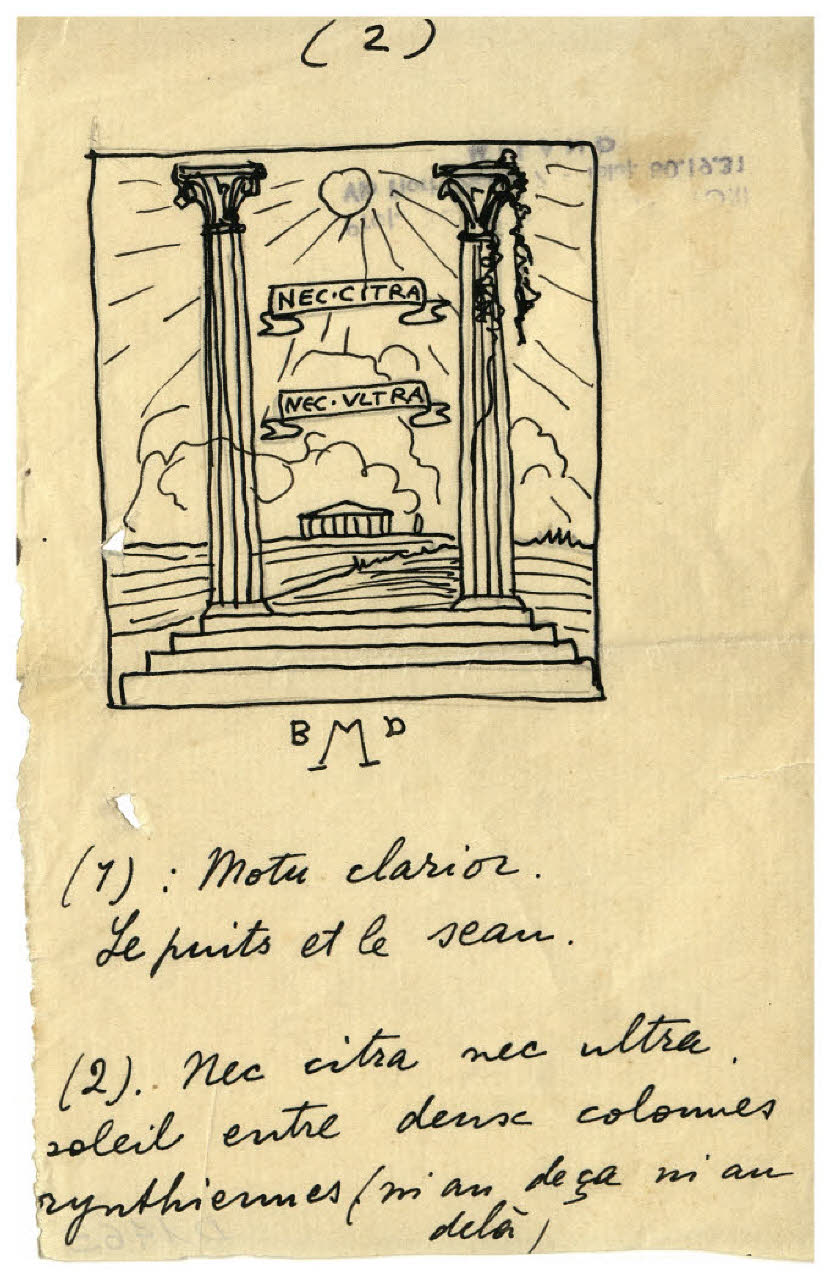 (2)
NEC·CITRA
NEC·VLTRA
B M D
(1) : Motu clarior.
Le puits et le seau.
(2). Nec citra nec ultra.
soleil entre deux colonnes
rynthiennes (ni au deça ni au
delà)